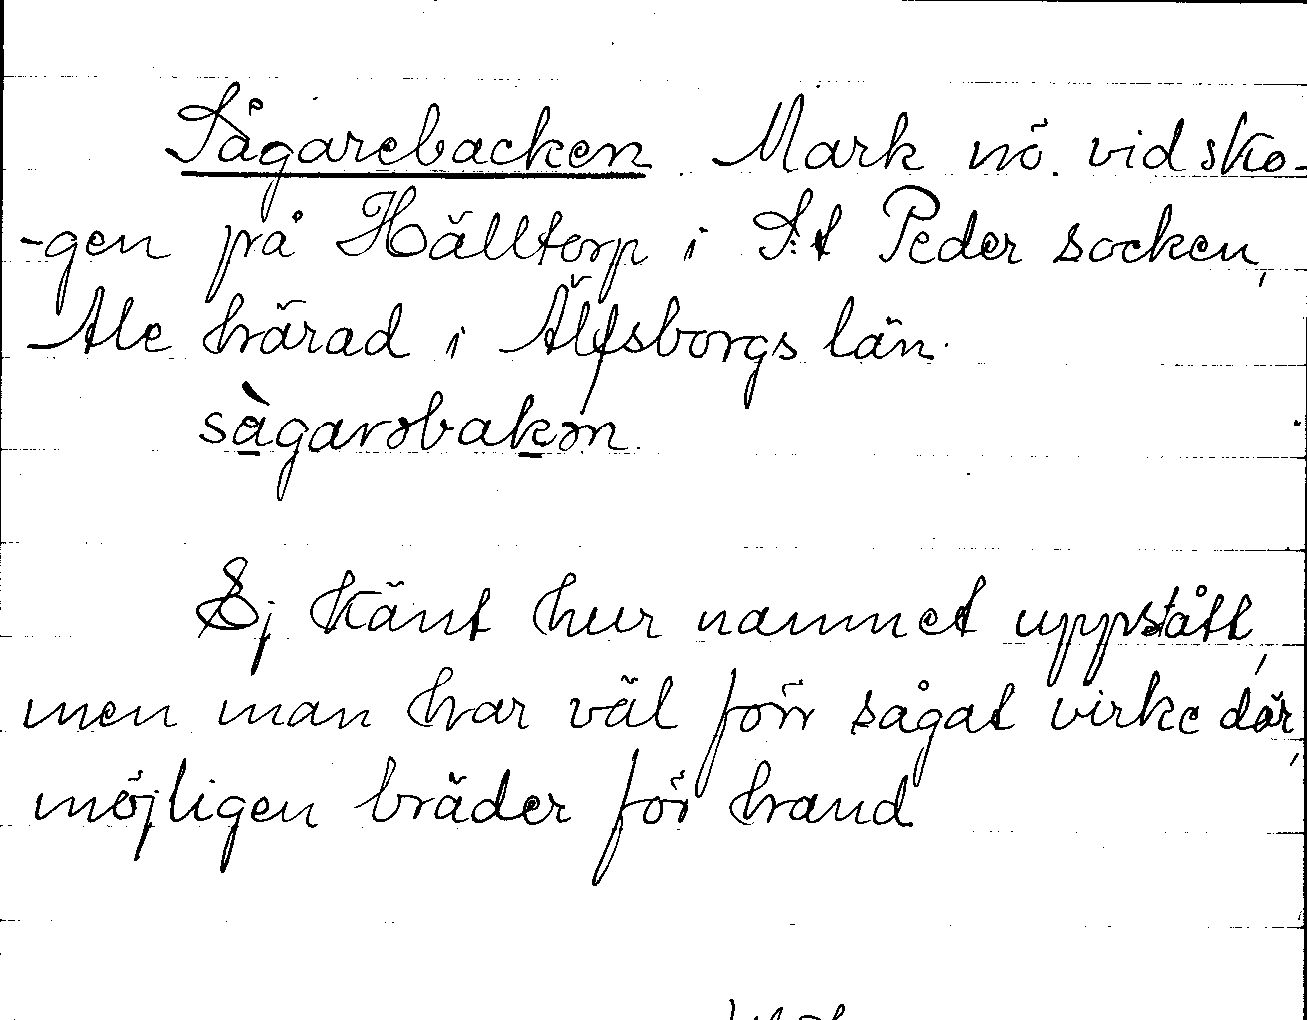 Sågarebacken Mark nö. vid sko-
-gen på Hälltorp i S:t Peder socken,
Ale härad i Älfsborgs län.
sàgarəbakən.
Ej känt hur namnet uppstått,
men man har väl förr sågat virke där,
möjligen bräder för hand